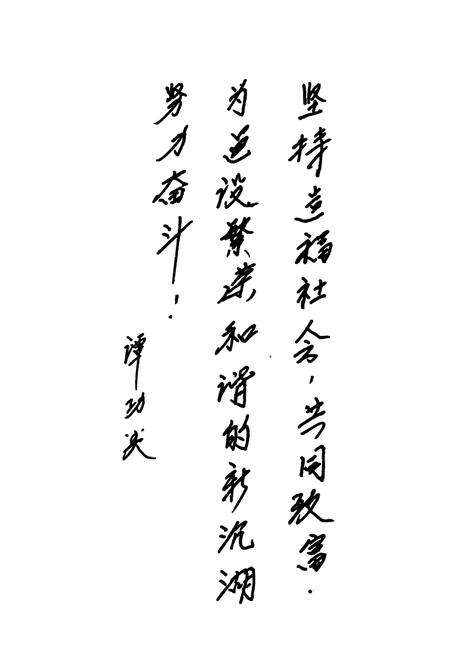 坚持造福社会，共同致富.
为建设繁荣和谐的新沉湖
努力奋斗！
谭功炎